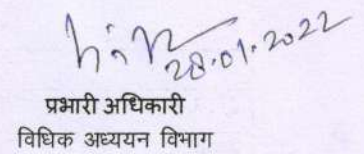 28.01.2022
प्रभारी अधिकारी
विधिक अध्ययन विभाग